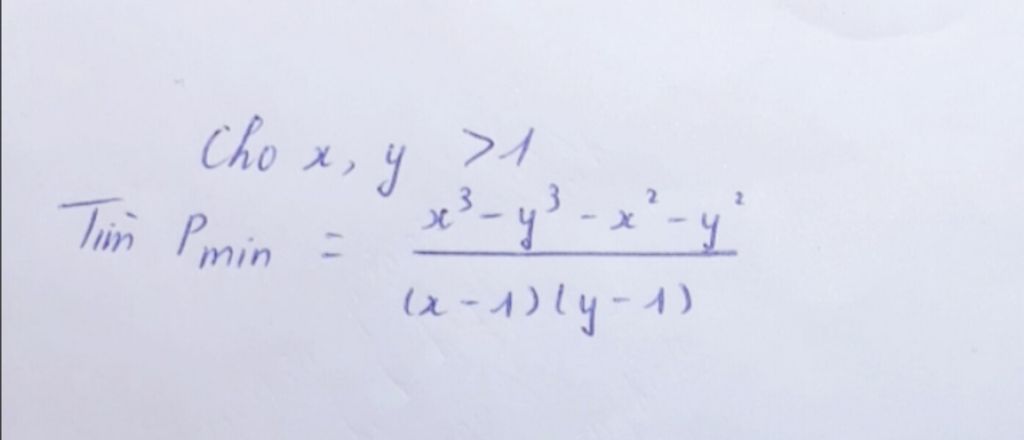 Cho x, y > 1
Tìm P_min = \frac{x^3 - y^3 - x^2 - y^2}{(x-1)(y-1)}